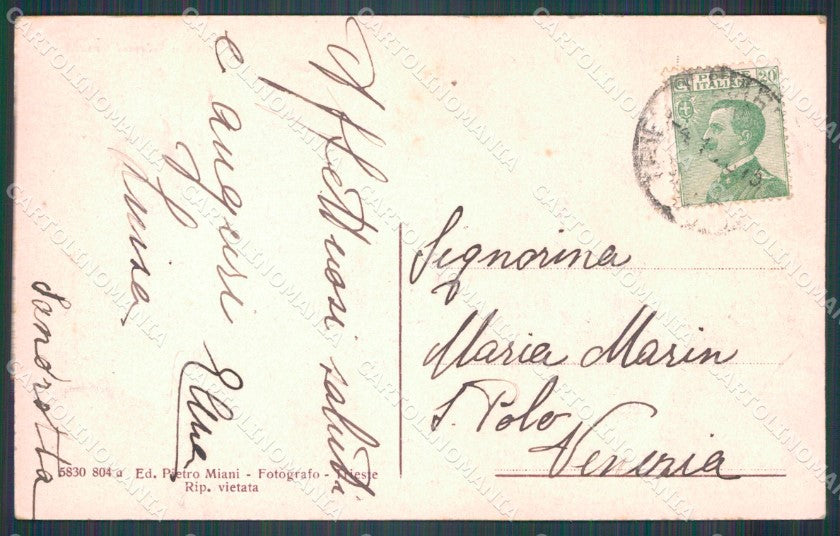 Affettuosi saluti
e auguri Elma
Luisa
Sandretta
5830 804 a Ed. Pietro Miani - Fotografo - Trieste
Rip. vietata
POSTE
ITALIANE
20
Signorina
Maria Marin
S. Polo
Venezia
CARTOLINOMANIA